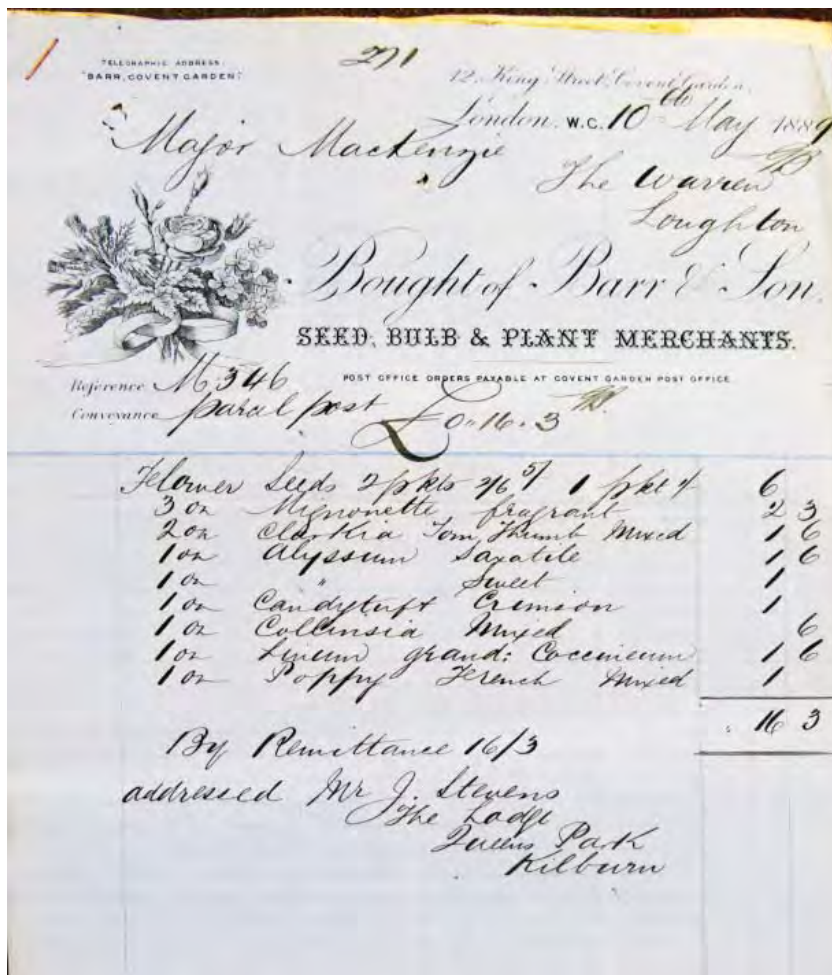 271
TELEGRAPHIC ADDRESS:
"BARR, COVENT GARDEN."
12, King Street, Covent Garden,
London, W.C. 10th May 1889
Major Mackenzie
The Warren
Loughton
Bought of Barr & Son,
SEED, BULB & PLANT MERCHANTS.
Reference M 346
POST OFFICE ORDERS PAYABLE AT COVENT GARDEN POST OFFICE
Conveyance parcel post
£0-16-3
Flower Seeds 2 pkts 2/6 5/ 1 pkt 1/ 6
3 oz Mignonette fragrant 2 3
2 oz Clarkia Tom Thumb Mixed 1 6
1 oz Alyssum Saxatile 1 6
1 oz " Sweet 1
1 oz Candytuft Crimson 1
1 oz Collinsia Mixed 6
1 oz Linum grand: Coccineum 1 6
1 oz Poppy French Mixed 1
16 3
By Remittance 16/3
addressed Mr J. Stevens
The Lodge
Queens Park
Kilburn